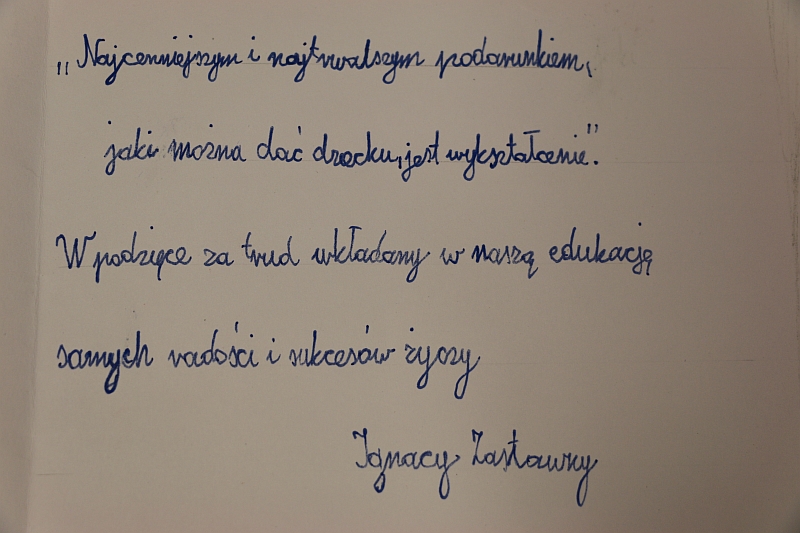 „Najcenniejszym i najtrwalszym podarunkiem,
jaki można dać dziecku, jest wykształcenie”.
W podzięce za trud wkładany w naszą edukację
samych radości i sukcesów życzy
Ignacy Zastawny